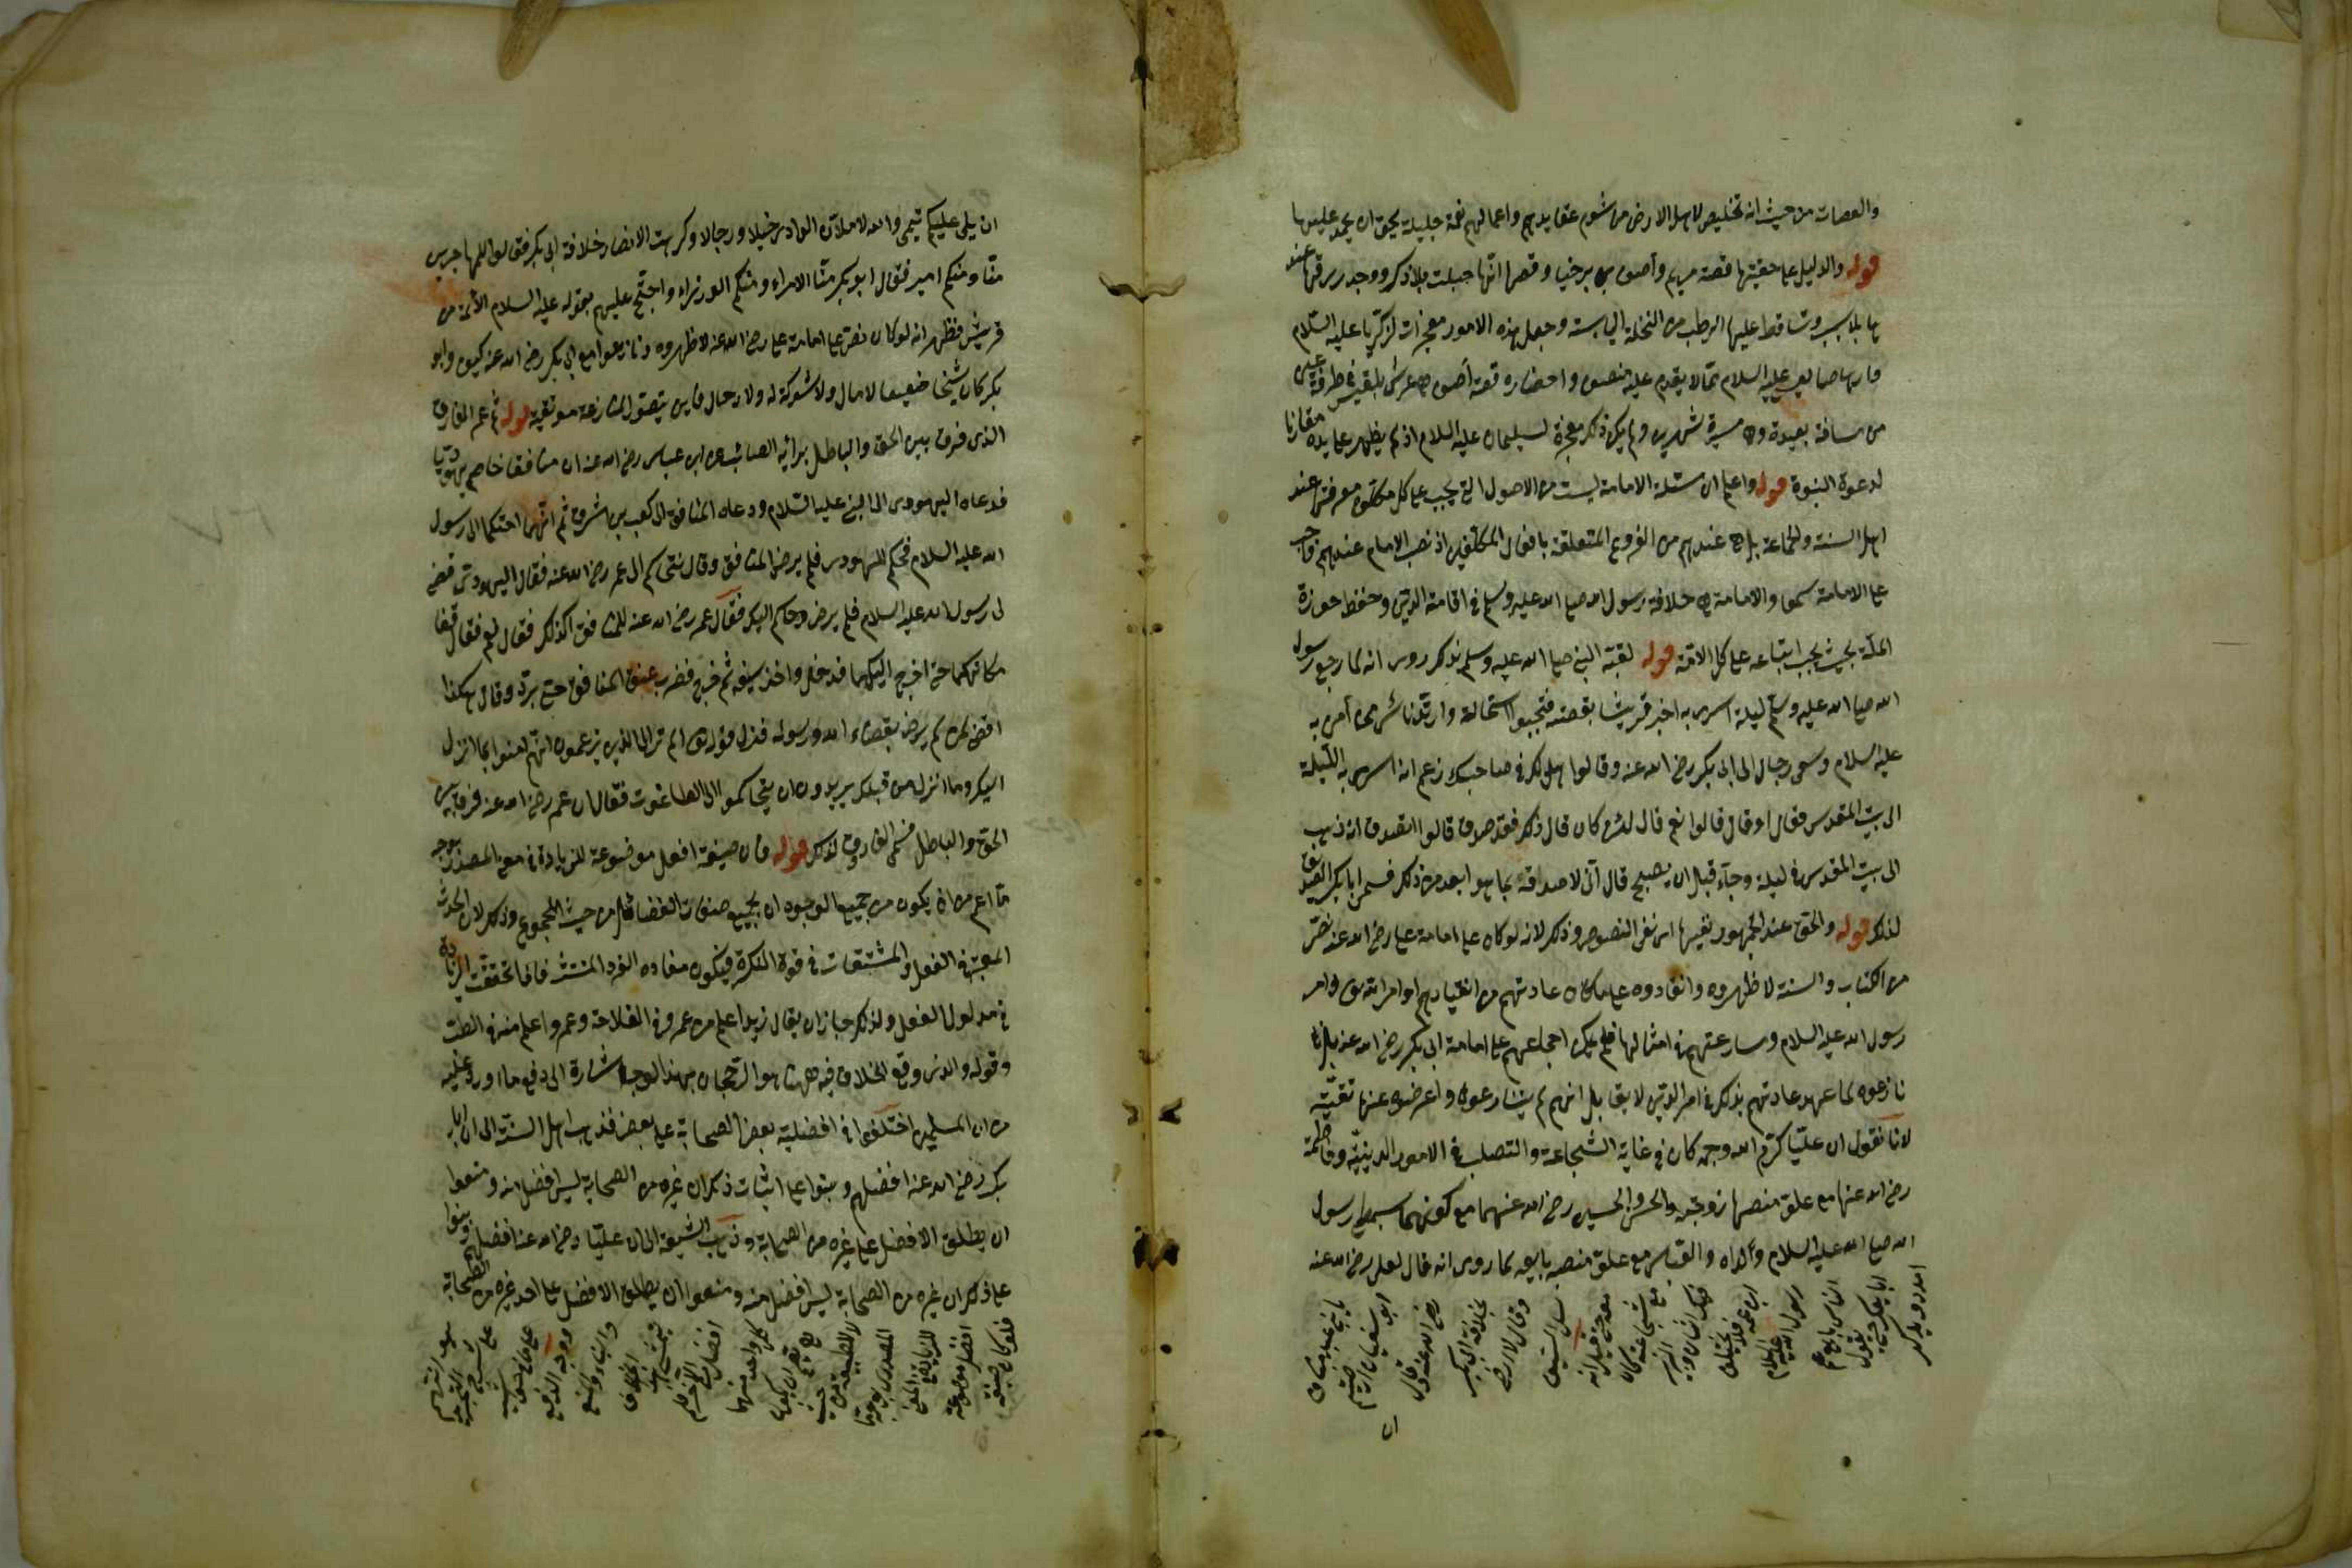 والعصات من حيث انه تخليص لاهل الارض من شوم عقايدهم واعمالهم نعمة جليلة يحق ان يحمد عليها
قوله والدليل على حقيتها قصة مريم وآصف بن برخيا وقصها انها حبلت بلا ذكر ووجد رزقها عند
ها بلا سبب وتساقط عليها الرطب من النخلة اليابسة وجعل هذه الامور معجزات لزكريا عليه السلام
عليه السلام مما لا يقدم عليه منصف واحضاره قصة آصف عرش بلقيس في طرفة عين
من مسافة بعيدة وهى مسيرة شهرين ولم يكن ذلك معجزة لسليمان عليه السلام اذ لم يظهر على يده مقارنا
لدعوة النبوة قوله واعلم ان مسئلة الامامة ليست من الاصول التى يجب على كل مكلف معرفتها عند
اهل السنة والجماعة بل هى عندهم من الفروع المتعلقة بافعال المكلفين اذ نصب الامام عندهم واجب
على الامامة سمعا والامامة هى خلافة رسول الله صلى الله عليه وسلم فى اقامة الدين وحفظ حوزة
الملة بحيث يجب اتباعه على كل الامة قوله لقبه النبى صلى الله عليه وسلم بذلك روى انه لما رجع رسول
الله صلى الله عليه وسلم ليلة اسرى به اخبر قريشا بقصته فتعجبوا استحالة وارتد ناس ممن آمن به
عليه السلام وسعى رجال الى ابى بكر رضى الله عنه وقالوا هل لك فى صاحبك زعم انه اسرى به الليلة
الى بيت المقدس فقال او قال قالوا نعم قال لئن كان قال ذلك فقد صدق قالوا اتصدق انه ذهب
الى بيت المقدس فى ليلة وجاء قبل ان يصبح قال انى لاصدقه بما هو ابعد من ذلك فسمى ابا بكر الصديق
لذلك قوله والحق عند الجمهور نفيها اى نفى النصوص وذلك لانه لو كان على امامة على رضى الله عنه نص
من الكتاب والسنة لاظهروه وانقادوه على ما كان عادتهم من انقيادهم اوامر الله تعالى واوامر
رسول الله عليه السلام ومسارعتهم فى امثالها فلم يكن اجماعهم على امامة ابى بكر رضى الله عنه بل
نازعوه لما عهد عادتهم بذلك فى امر الدين لا يقال انهم لم ينازعوه واعرضوا عنها تقية
لانا نقول ان عليا كرم الله وجهه كان فى غاية الشجاعة والتصلب فى الامور الدينية وفاطمة
رضى الله عنها مع علو منصبها زوجته والحسن والحسين رضى الله عنهما مع كونهما سبطى رسول
الله صلى الله عليه السلام ولداه والعباس مع علو منصبه بايعه لما روى انه قال لعلى رضى الله عنه
امدد يدك
ابايعك حتى يقول
الناس بايع عم
رسول الله عليه السلام
ابن عمه فلا يختلف
فيك اثنان والزبير
مع شجاعته كان
معه حتى قيل انه
سل السيف
وقال لا ارضى
بخلافة ابى بكر
رضى الله عنه وقال
ابو سفيان ارضيتم
يا بنى عبد مناف
ان
ان يلى عليكم تيمى والله لاملأن الوادى خيلا ورجالا وكرهت الانصار خلافة ابى بكر فقالوا للمهاجرين
منا ومنكم امير فقال ابو بكر منا الامراء ومنكم الوزراء واحتج عليهم بقوله عليه السلام الأئمة من
قريش فظهر انه لو كان نص على امامة على رضى الله عنه لاظهروه ونازعوا مع ابى بكر رضى الله عنه كيف وابو
بكر كان شيخا ضعيفا لا مال ولا شوكة له ولا رجال فاين يتصور المنازعة معه تقية قوله ثم عمر الفاروق
الذى فرق بين الحق والباطل برأيه الصائب عن ابن عباس رضى الله عنه ان منافقا خاصم يهوديا
فدعاه اليهودى الى النبى عليه السلام ودعاه المنافق الى كعب بن اشرف ثم انهما احتكما الى رسول
الله عليه السلام فحكم لليهودى فلم يرض المنافق وقال نتحاكم الى عمر رضى الله عنه فقال اليهودى قضى
لى رسول الله عليه السلام فلم يرض وحاكم اليك فقال عمر رضى الله عنه للمنافق اكذلك فقال نعم فقال قفا
مكانكما حتى اخرج اليكما فدخل واخذ سيفه ثم خرج فضرب عنق المنافق حتى برد وقال هكذا
اقضى لمن لم يرض بقضاء الله ورسوله فنزل قوله تعالى الم تر الى الذين يزعمون انهم آمنوا بما انزل
اليك وما انزل من قبلك يريدون ان يتحاكموا الى الطاغوت فقال ان عمر رضى الله عنه فرق بين
الحق والباطل فسمى الفاروق لذلك قوله فان صيغة افعل موضوعة للزيادة فى معنى المصدر بوجه
ما اعم من ان يكون من جميع الوجوه ان بجميع صفات الفضائل من حيث المجموع وذلك لان الحدث
المعتبر فى الفعل والمشتقات فى قوة النكرة فيكون مفاده الفرد المنتشر فاذا تحققت الزيادة
فى مدلول الفعل ولذلك جاز ان يقال زيد اعلم من عمرو فى الفلاحة وعمرو اعلم منه فى الطب
وقوله والذى وقع الخلاف فيه ههنا هو الرجحان بهذا الوجه اشارة الى دفع ما اورد عليه
من ان المسلمين اختلفوا فى افضلية بعض الصحابة على بعض فذهب اهل السنة الى ان ابا
بكر رضى الله عنه افضلهم وبنوا على اثبات ذلك ان غيره من الصحابة ليس افضل منه ومنعوا
ان يطلق الافضل على غيره من الصحابة وذهب الشيعة الى ان عليا رضى الله عنه افضلهم وبنوا
على ذلك ان غيره من الصحابة ليس افضل منه ومنعوا ان يطلق الافضل على احد غيره من الصحابة
فلو كان صيغة
افضل موضوعة
للزيادة فى المعنى
المصدرى بوجه ما